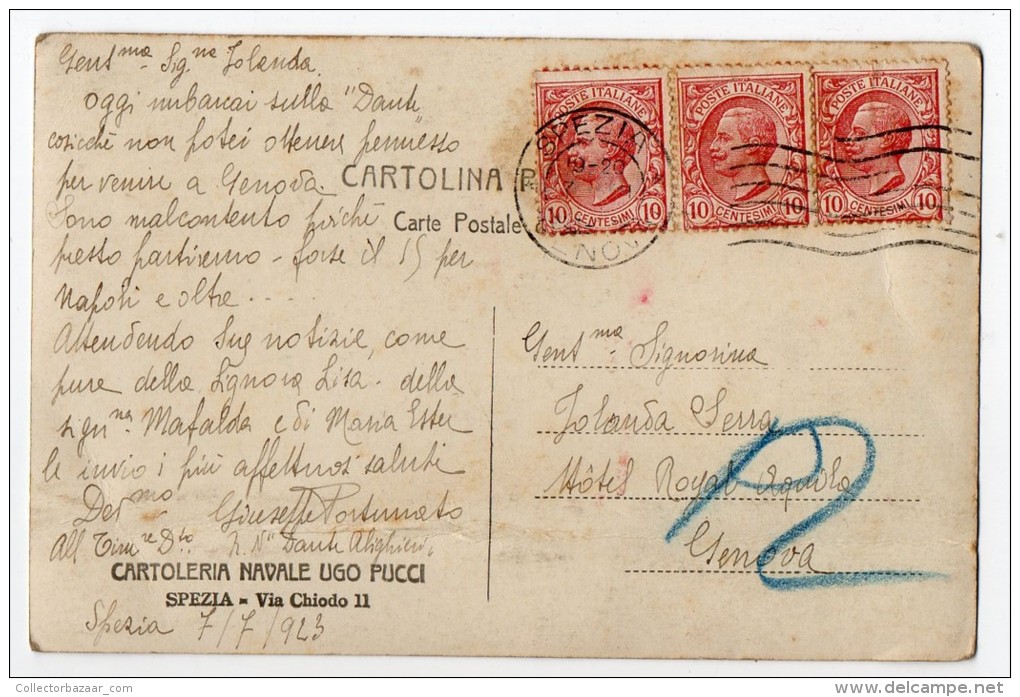 Gent ma Sig. na Jolanda.
Oggi imbarcai sulla "Dante"
cosicchè non potei ottenere permesso
per venire a Genova.
Sono malcontento poichè
presto partiremo - forse il 15 per
Napoli e oltre.....
Attendendo Sue notizie, come
pure della Signora Lisa. della
sign. na Mafalda e di Maria Ester
le invio i più affettuosi saluti
Dev mo Giuseppe Fortunato
All. Dto R. N. "Dante Alighieri"
CARTOLERIA NAVALE UGO PUCCI
SPEZIA - Via Chiodo 11
Spezia 7/7/923
CARTOLINA P
Carte Postale
POSTE ITALIANE
10 CENTESIMI 10
POSTE ITALIANE
10 CENTESIMI 10
POSTE ITALIANE
10 CENTESIMI 10
SPEZIA
Gent ma Signorina
Jolanda Serra
Hôtel Royal Aquila
Genova
Collectorbazaar.com
delcampe.net